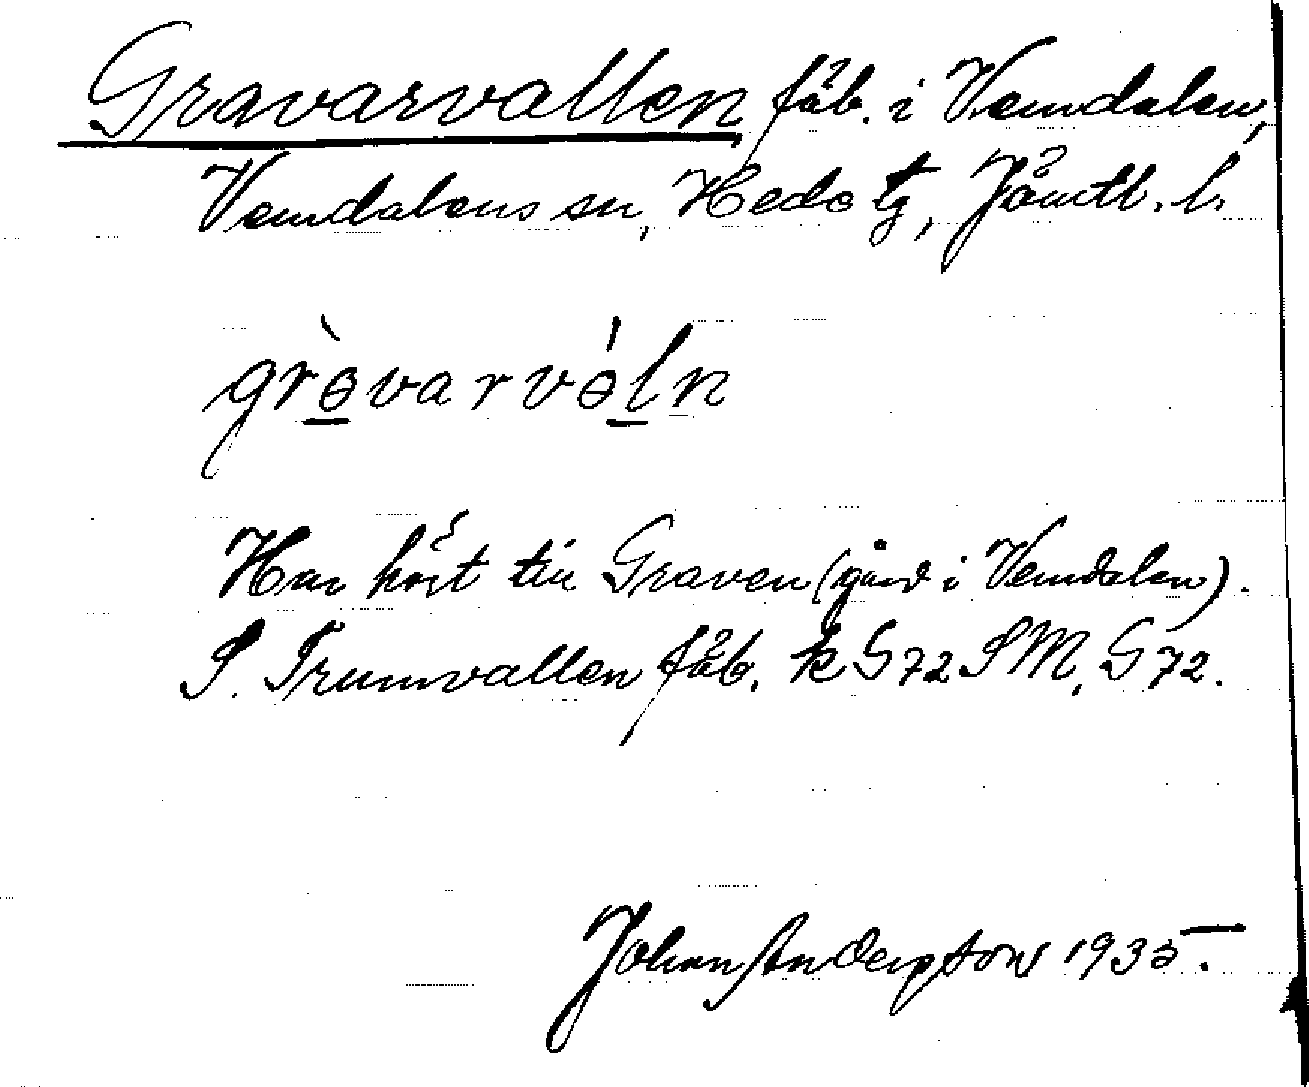 Gravarvallen, fäb. i Vemdalen,
Vemdalens sn, Hede tg, Jämtl. l.
grə̀varvəĺn
Har hört till Graven (gård i Vemdalen).
S. Trumvallen fäb. k S72 SM, S72.
Johan Anderson 1935.